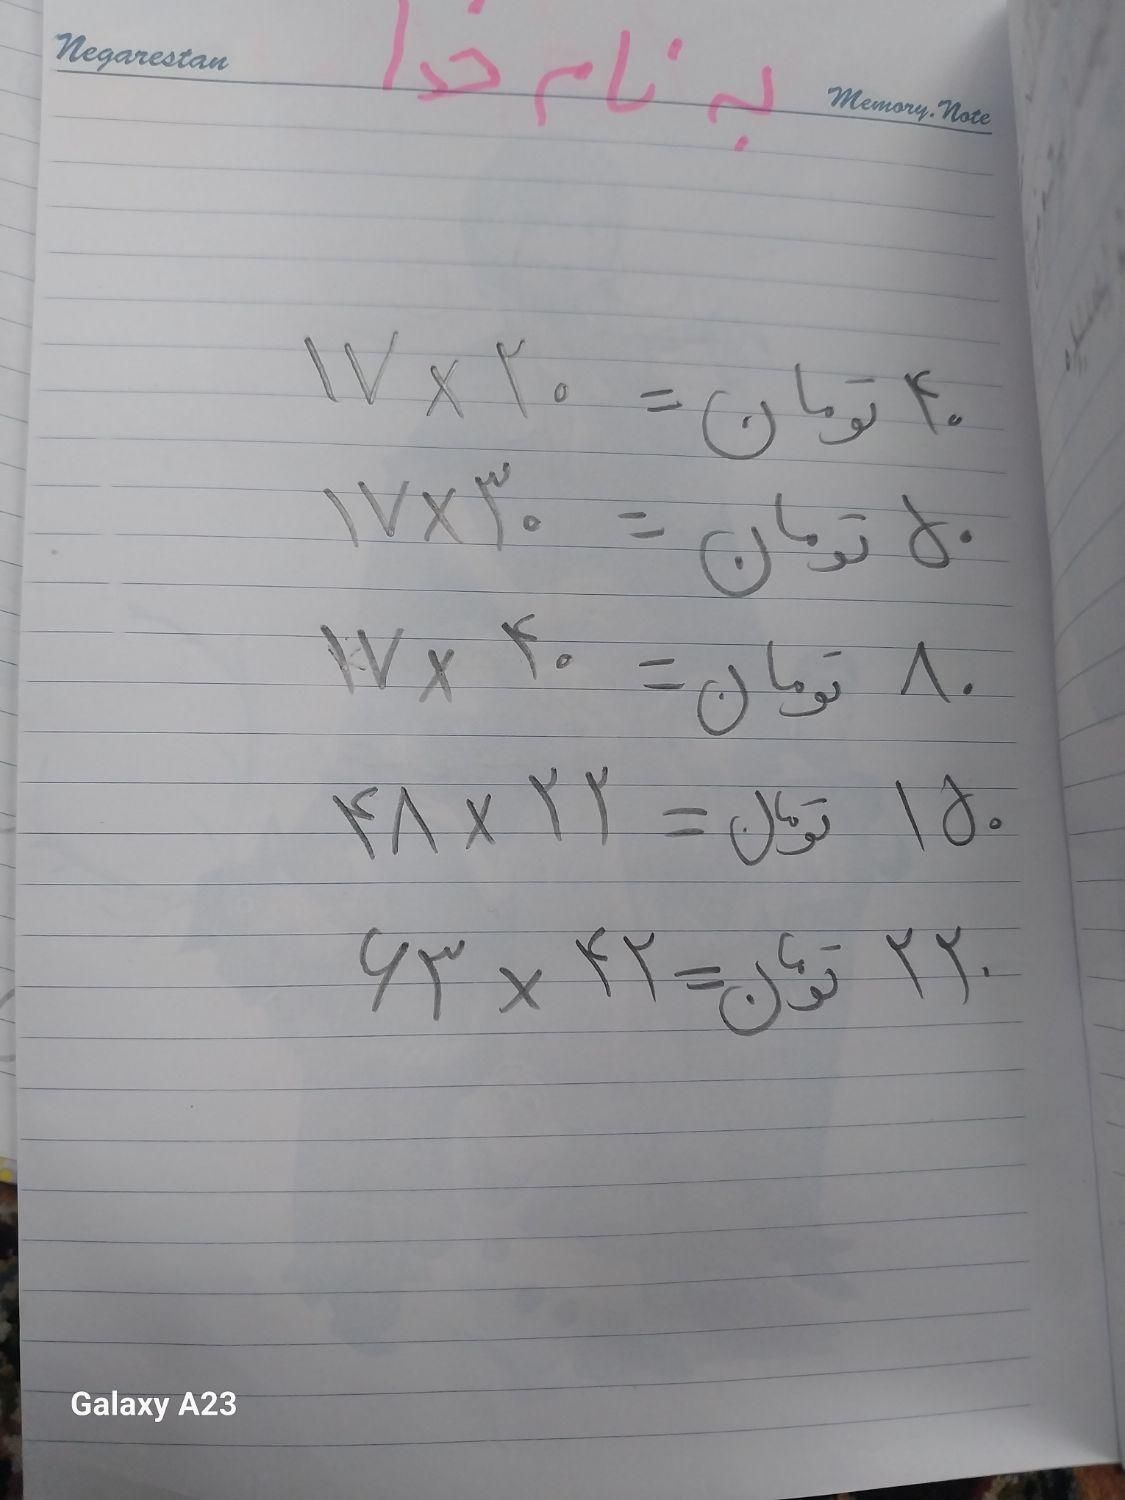 Negarestan
به نام خدا
Memory.Note
۱۷ × ۲۰ = ۴۰ تومان
۱۷ × ۳۰ = ۵۰ تومان
۱۷ × ۴۰ = ۸۰ تومان
۴۸ × ۲۲ = ۱۵۰ تومان
۶۳ × ۴۲ = ۲۲۰ تومان
Galaxy A23